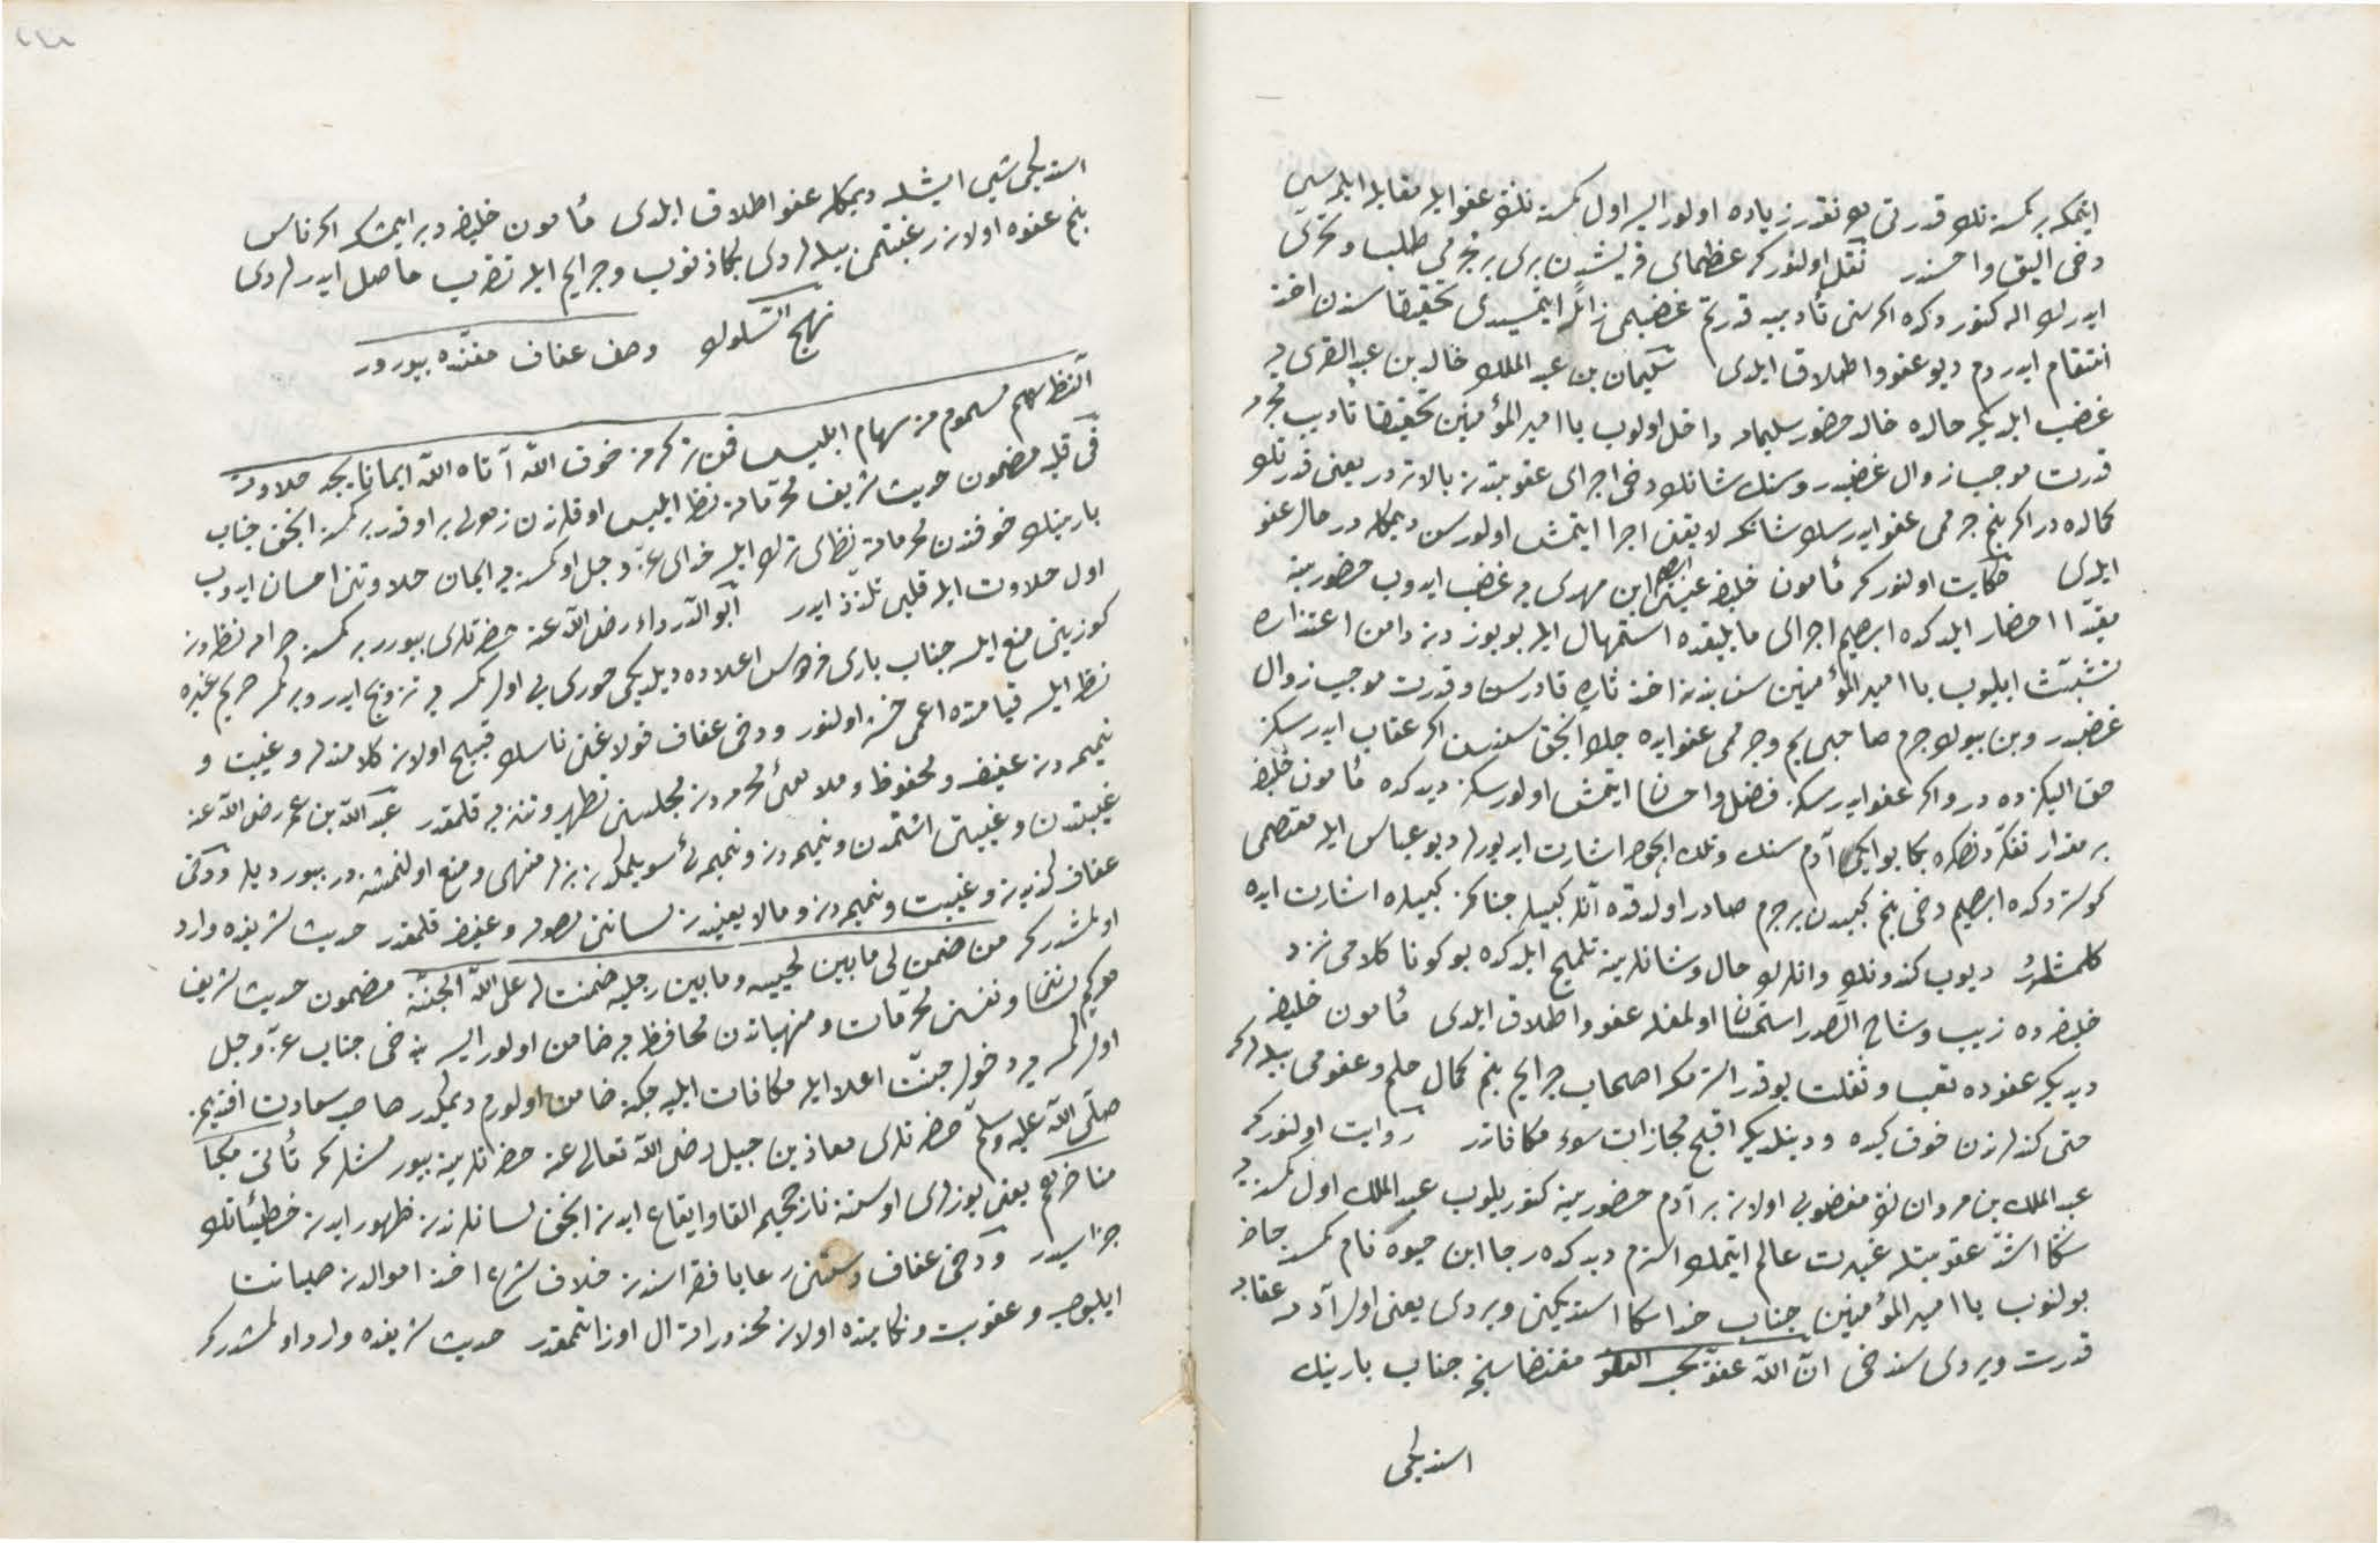 ایتمكه بر كمسنه نك قدرتی هر نقدر زیاده اولور ایسه اول كمسنه نك عفو ایله مقابله ایلمسی
دخی الیق و احسندر نقل اولنور كه عظمای قریشدن بری بر مجرمی طلب و تحری
ایدرك اله كتوردكده اكر سنی تأدیبه قدرتم غضبمی زائل ایتمیسدی تحقیقا سندن اخذ
انتقام ایدردم دیو عفو و اطلاق ایلدی سلیمان بن عبد الملك خالد بن عبد القسری یه
غضب ایلدیكی حالده خالد حضور سلیمانه داخل اولوب یا امیر المؤمنین تحقیقا تأدیب مجرمه
قدرت موجب زوال غضبدر و سنك شانك دخی اجرای عقوبتدن بالاتردر یعنی قدرتك
كمالده در اكر بنم جرممی عفو ایدرسك شانكه لایقنی اجرا ایتمش اولورسن دیمكله در حال عفو
ایلدی حكایت اولنور كه مأمون خلیفه ابراهیم ابن مهدی یه غضب ایدوب حضورینه
مقیدا احضار ایلدكده ابراهیم اجرای ما یلیقده استمهال ایله بو یوزدن دامن اعتذاره
تشبث ایلیوب یا امیر المؤمنین سن بندن اخذ ثاره قادرسن و قدرت موجب زوال
غضبدر و بن بیوك جرم صاحبی یم و جرممی عفو ایده جك انجق سنسن اكر عقاب ایدرسكز
حق الیكزده در و اكر عفو ایدرسكز فضل و احسان ایتمش اولورسكز دیدكده مأمون خلیفه
بر مقدار تفكر دنصكره بكا بو ایكی آدم سنك قتلك ایچون اشارت ایدیورلر دیو عباس ایله معتصمی
كوستردكده ابراهیم دخی بنم كبیدن بر جرم صادر اولدقده آنلر كبیلر جنابكز كبیلره اشارت ایده
كلمشلردر دیوب كندونك و انلرك حال و شانلرینه تلمیح ایلدكده بو كونا كلامی نزد
خلیفه ده زیب و شاح الصدر استحسان اولمغله عفو و اطلاق ایلدی مأمون خلیفه
دیدیكه عفوده تعب و ثقلت یوقدر الا مكر اصحاب جرایم بنم كمال حلم و عفومی بیلدكه
حتی كندلردن خوف كیده و دینلدیكه اقبح مجازات سوء مكافاتدر روایت اولنور كه
عبد الملك بن مروان نك مغضوبی اولان بر آدم حضورینه كتوریلوب عبد الملك اول كمسنه یه
سكا اشد عقوبتله عبرت عالم ایتمك الزم دیدكده رجا ابن حیوه نام كمسنه حاضر
بولنوب یا امیر المؤمنین جناب خدا سكا استدیكنی ویردی یعنی اول آدمه عقابه
قدرت ویردی سندخی ان الله عفو یحب العفو مقتضاسنجه جناب بارینك
استدیكی
استدیكی شیی ایشله دیمكله عفو اطلاق ایلدی مأمون خلیفه دیر ایمش كه اكر ناس
بنم عفوه اولان رغبتمی بیلدردی بكا ذنوب و جرایم ایله تقرب حاصل ایدرلردی
نهج السلوك وصف عفاف مفننده بیورور
النظر سهم مسموم من سهام ابلیس فمن تركه من خوف الله آتاه الله ایمانا یجد حلاوته
فی قلبه مضمون حدیث شریف محرماته نظر ابلیس اوقلرندن زهرلی بر اوقدر بر كمسنه انجق جناب
بارینك خوفندن محرماته نظری ترك ایلسه خدای عز و جل او كمسنه یه ایمان حلاوتنی احسان ایدوب
اول حلاوت ایله قلبی تلذذ ایدر ابو الدرداء رضی الله عنه حضرتلری بیورر بر كمسنه حرامه نظردن
كوزینی منع ایلسه جناب باری فردوس اعلاده دیلدیكی حوری یی اول كمسه یه تزویج ایدر و بر كمسه حریم غیره
نظر ایلسه قیامتده اعمی حشر اولنور و دخی عفاف قولاغنی ناسك قبیح اولان كلامندن و غیبت و
نمیمه دن عفیف و محفوظ و ملاعبی محرمدن مجلسنی تطهیر و تنزیه قلمقدر عبد الله بن عمر رضی الله عنه
غیبتدن و غیبتی اشتمدن و نمیمه دن و نمیمه یی سویلمكدن بزلر منهی و منع اولنمشزدر بیوردیلر و دخی
عفاف كذبدن و غیبت و نمیمه دن و مالا یعنیدن لساننی صون و عفیف قلمقدر حدیث شریفده وارد
اولمشدر كه من ضمن لی ما بین لحییه و ما بین رجلیه ضمنت له علی الله الجنة مضمون حدیث شریف
هر كیم لساننی و نفسنی محرمات و منهیاتدن محافظه یه ضامن اولور ایسه بن دخی جناب عز و جل
اول كمسه یه دخول جنت اعلا ایله مكافات ایلیه جكنه ضامن اولورم دیمكدر صاحب سعادت افندیمز
صلی الله علیه وسلم حضرتلری معاذ بن جبل رضی الله تعالی عنه حضرتلرینه بیورمشلر كه
مناخرهم یعنی یوزلری اوستنه نار جحیمه القا و ایقاع ایدن انجق لسانلرندن ظهور ایدن خطیئاتك
جزاسیدر و دخی عفاف دستنی رعایا فقراسندن خلاف شرع اخذ اموالدن صیانت
ایلیوب و عقوبت و نكایتده اولان محذوراتدن ال اوزاتمقدر حدیث شریفده وارد اولمشدر كه